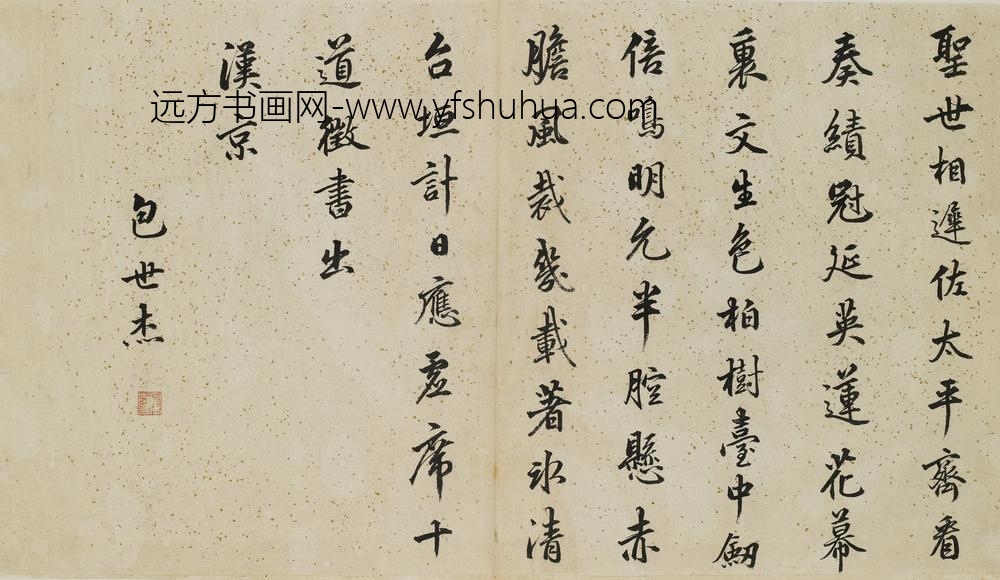 聖世相遅佐太平齊看
奏績冠延英蓮花幕
裏文生色柏樹臺中劒
倍鳴明允半腔懸赤
膽風裁幾載著氷清
台垣計日應虚席十
道徵書出
漢京
包世杰
远方书画网-www.yfshuhua.com